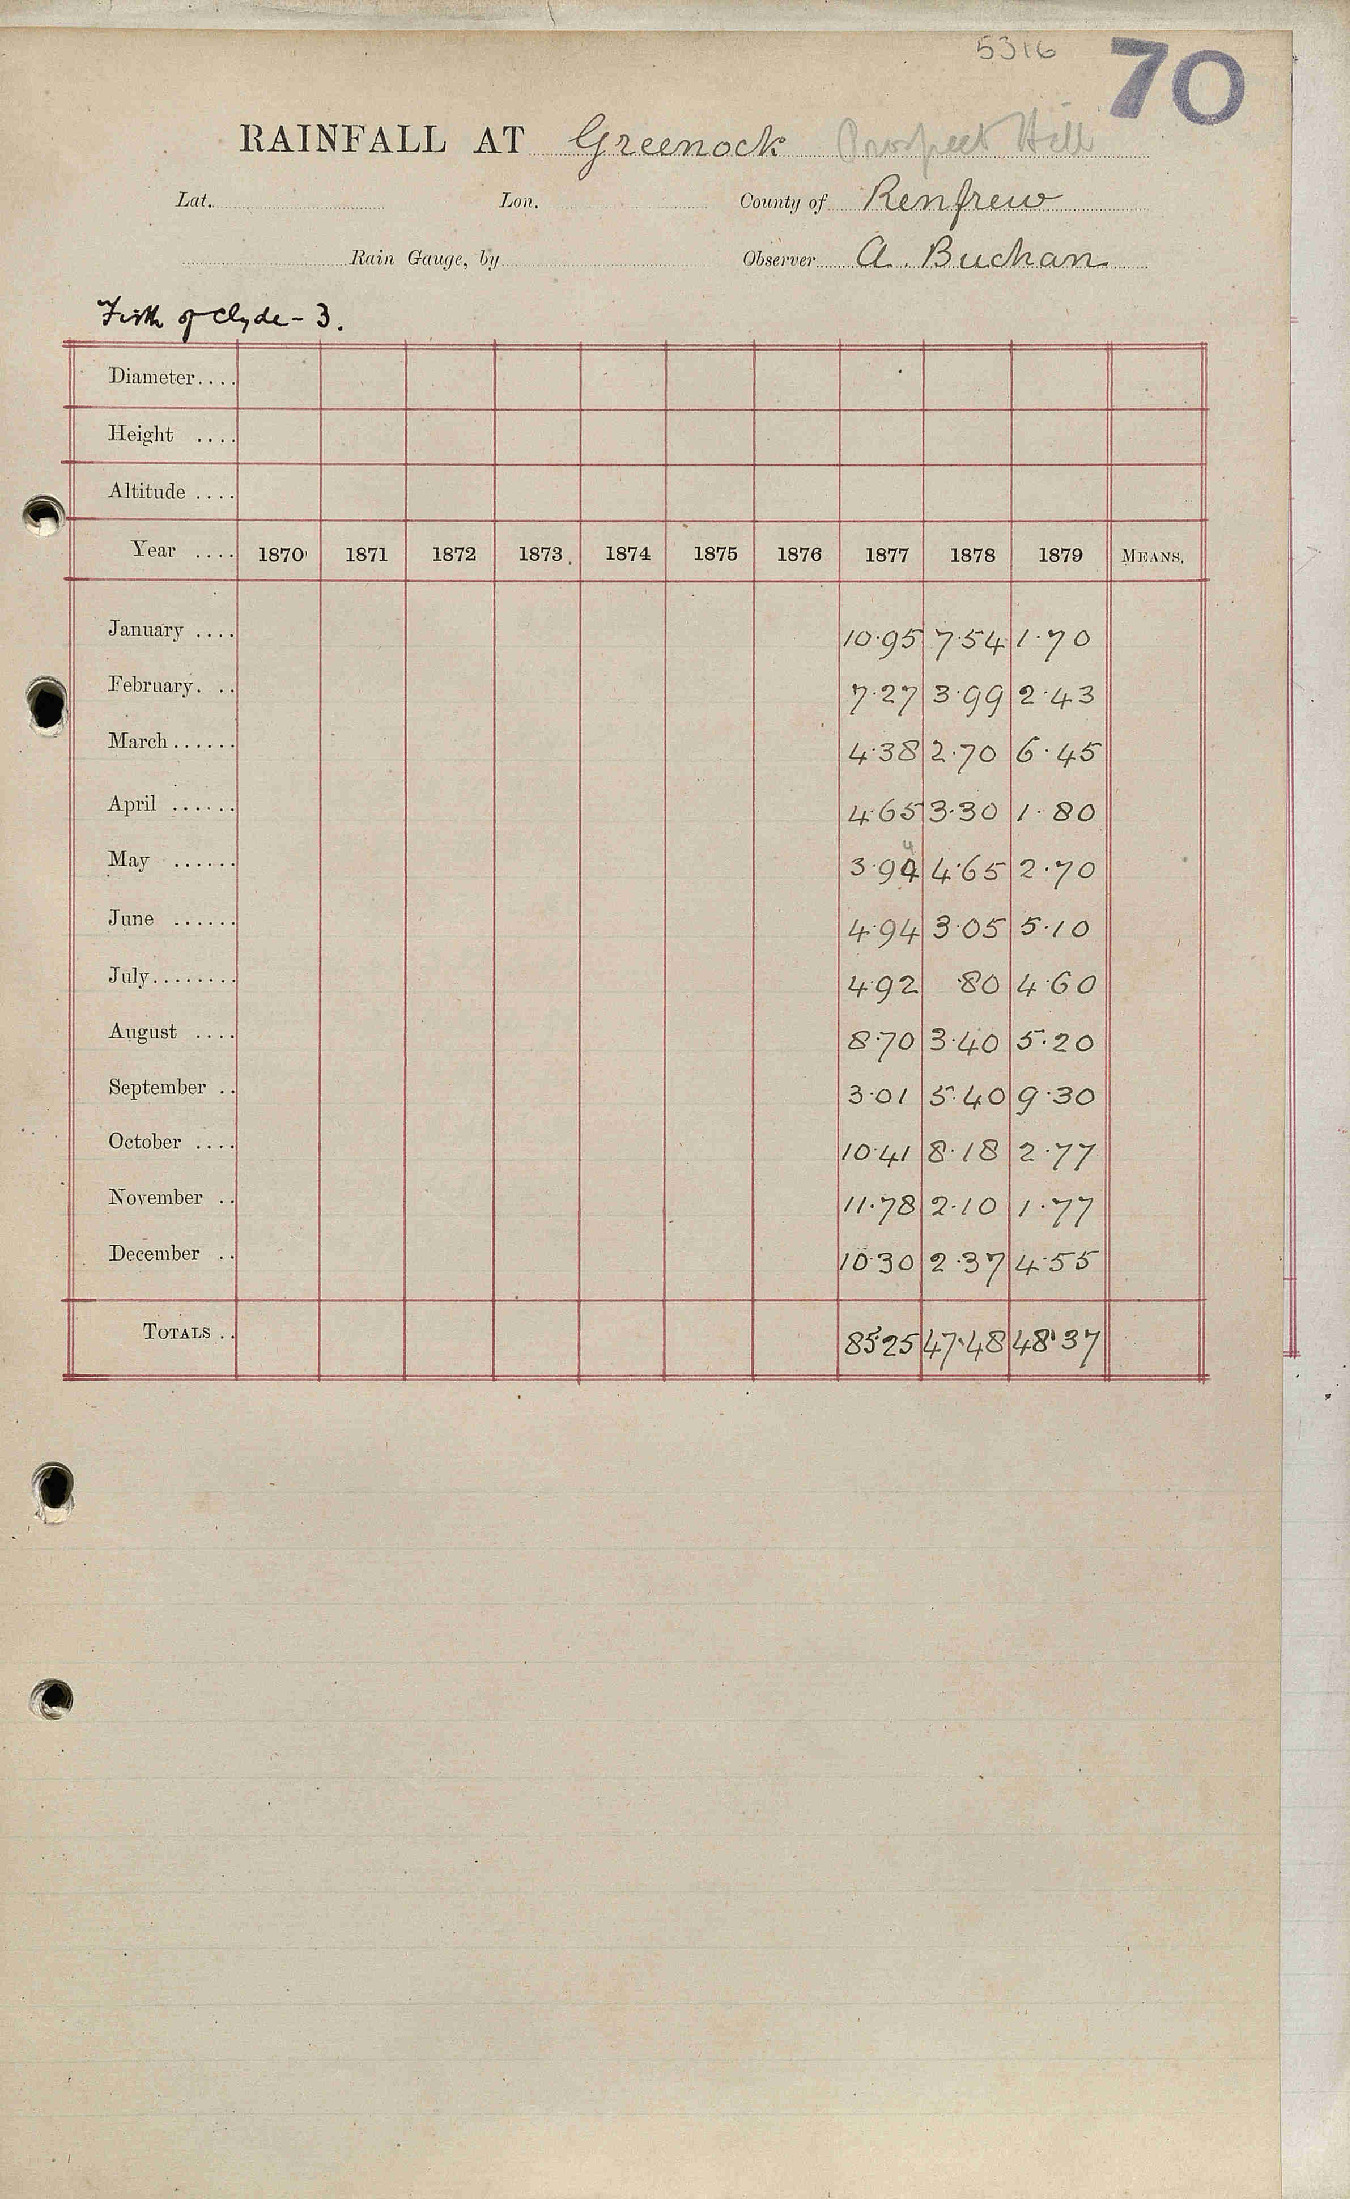 5316 70
RAINFALL AT Greenock Prospect Hill
Lat. Lon. County of Renfrew
Rain Gauge, by Observer A. Buchan
Firth of Clyde - 3.
Diameter....
Height ....
Altitude ....
Year .... 1870 1871 1872 1873 1874 1875 1876 1877 1878 1879 MEANS.
January .... 10.95 7.54 1.70
February. .. 7.27 3.99 2.43
March...... 4.38 2.70 6.45
April ...... 4.65 3.30 1.80
4
May ...... 3.94 4.65 2.70
June ...... 4.94 3.05 5.10
July........ 4.92 .80 4.60
August .... 8.70 3.40 5.20
September .. 3.01 5.40 9.30
October .... 10.41 8.18 2.77
November .. 11.78 2.10 1.77
December .. 10.30 2.37 4.55
TOTALS .. 85.25 47.48 48.37